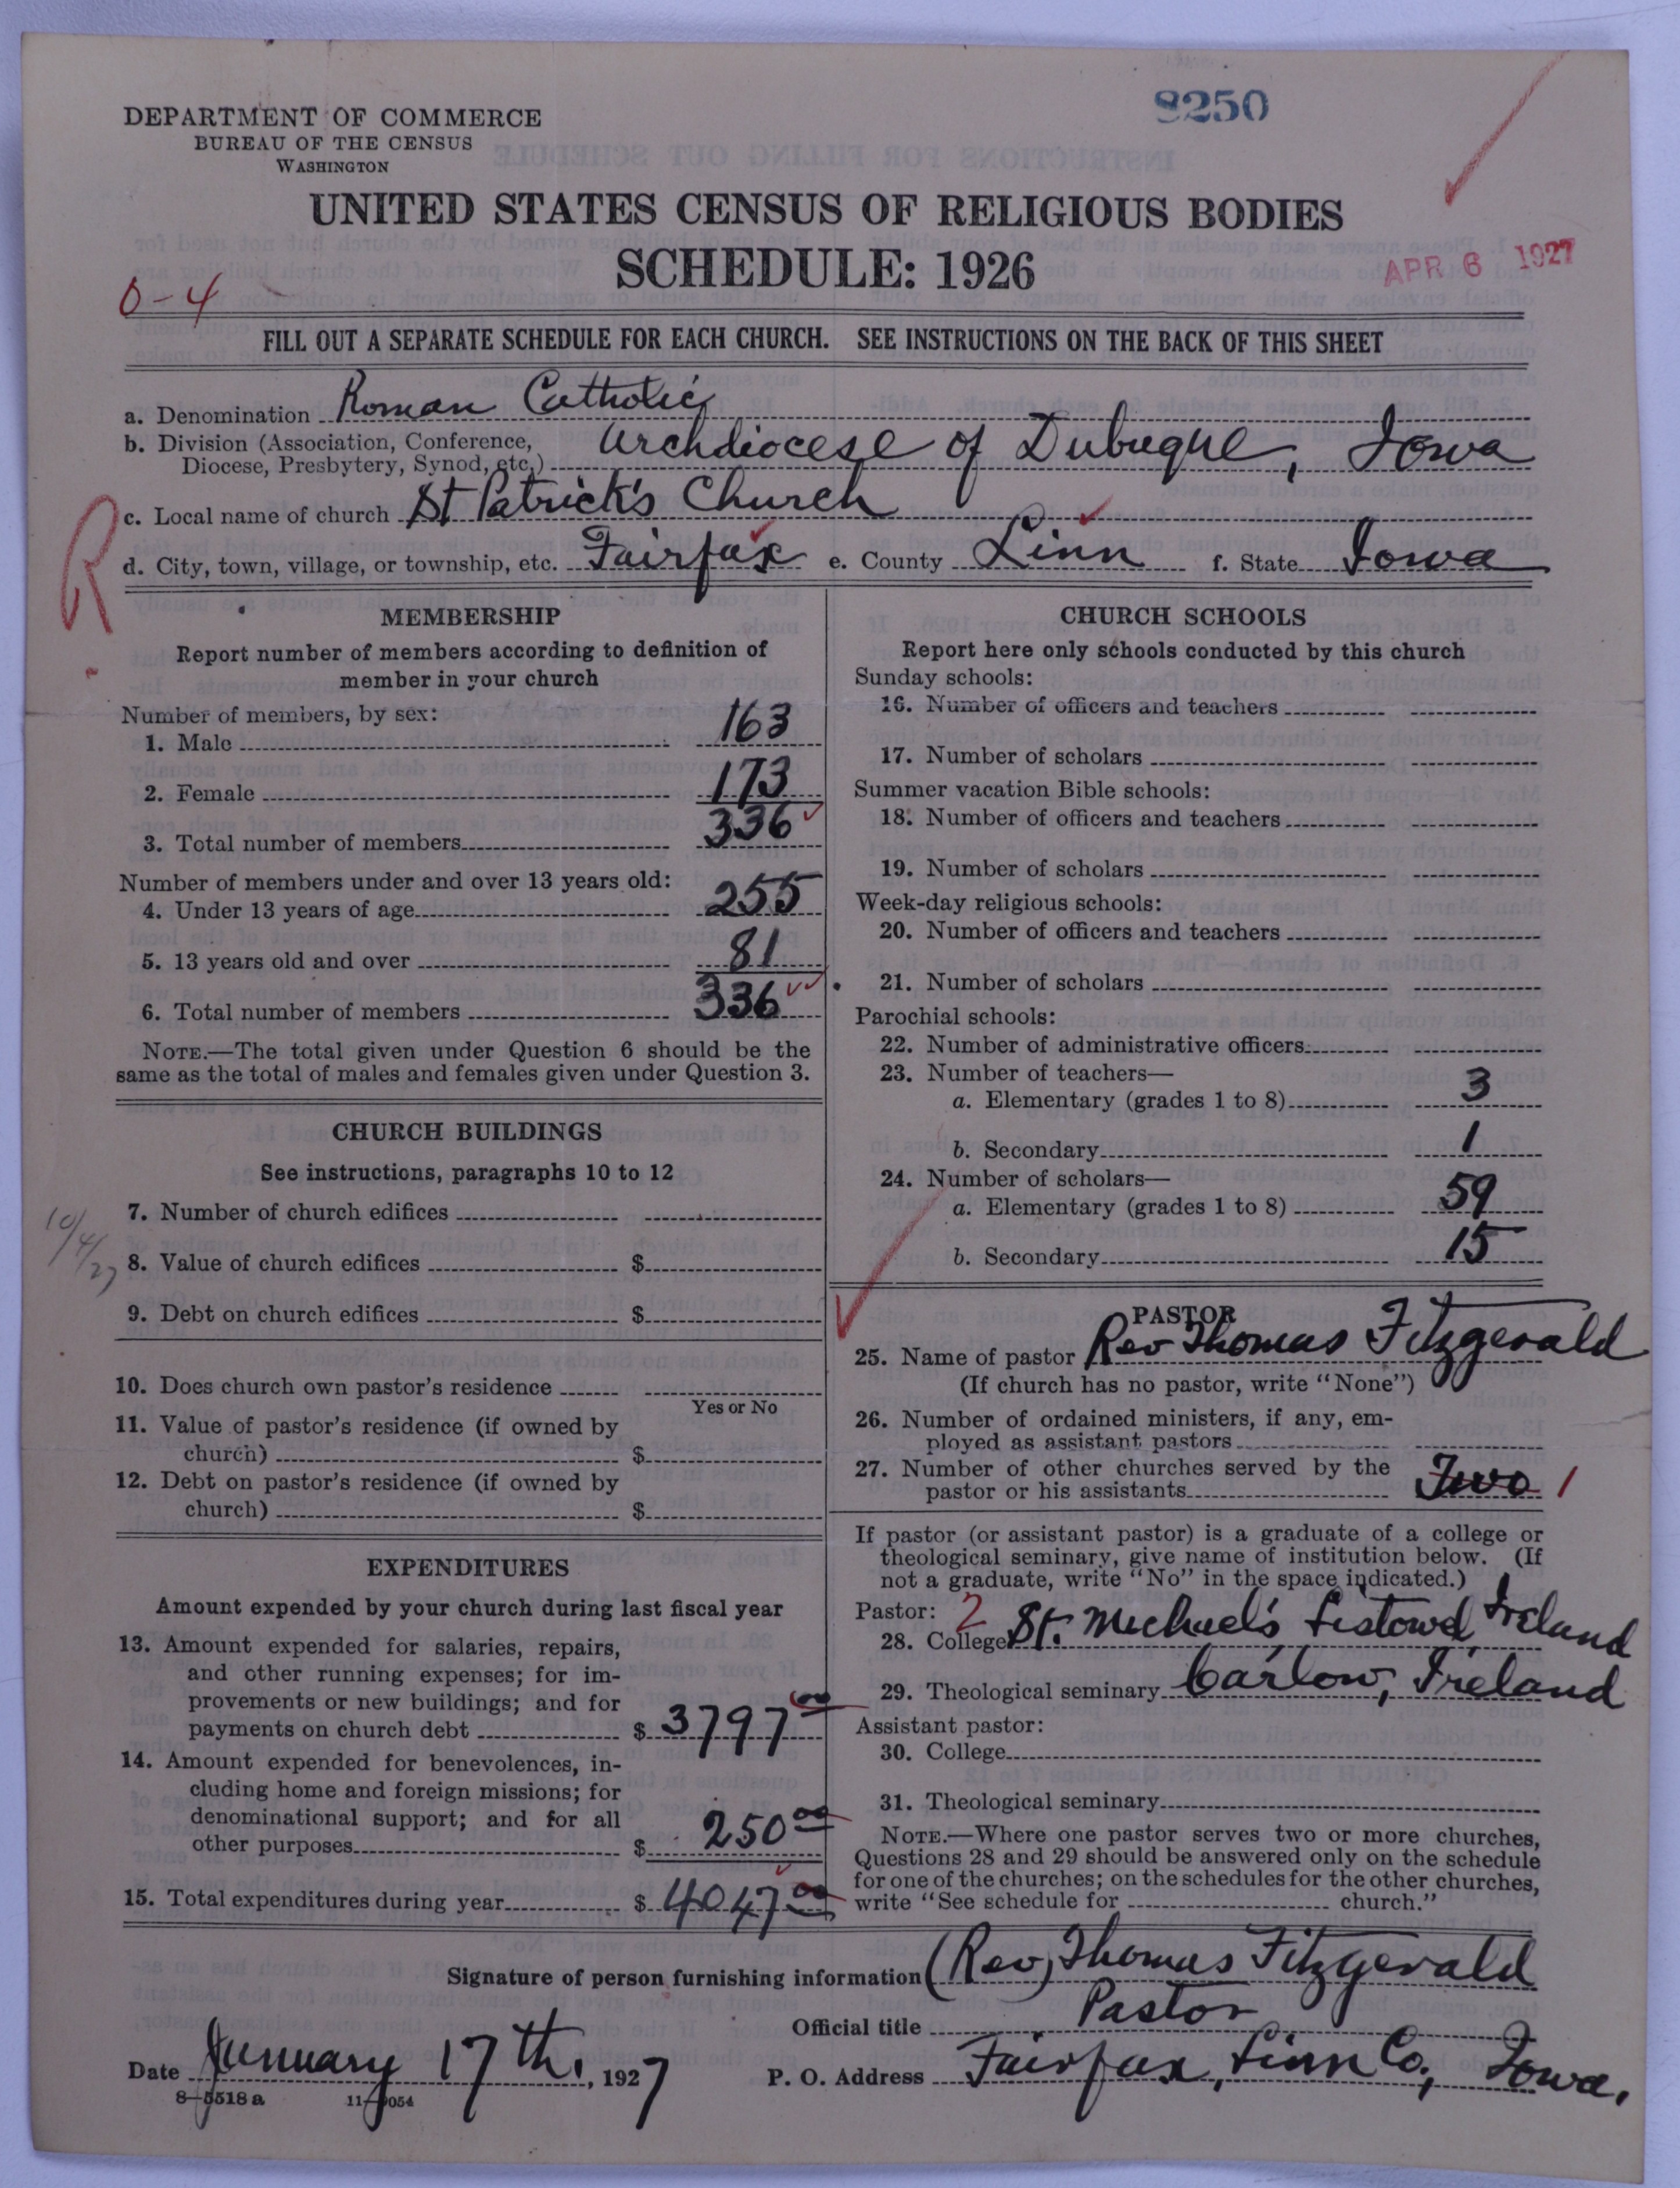 8250
DEPARTMENT OF COMMERCE
BUREAU OF THE CENSUS
WASHINGTON
UNITED STATES CENSUS OF RELIGIOUS BODIES
SCHEDULE: 1926
APR 6 1927
0-4
FILL OUT A SEPARATE SCHEDULE FOR EACH CHURCH. SEE INSTRUCTIONS ON THE BACK OF THIS SHEET
a. Denomination Roman Catholic
b. Division (Association, Conference, Diocese, Presbytery, Synod, etc.) Archdiocese of Dubuque, Iowa
c. Local name of church St Patrick's Church
R
d. City, town, village, or township, etc. Fairfax e. County Linn f. State Iowa
MEMBERSHIP
Report number of members according to definition of
member in your church
Number of members, by sex:
1. Male 163
2. Female 173
3. Total number of members 336
Number of members under and over 13 years old:
4. Under 13 years of age 255
5. 13 years old and over 81
6. Total number of members 336
NOTE.—The total given under Question 6 should be the
same as the total of males and females given under Question 3.
CHURCH BUILDINGS
See instructions, paragraphs 10 to 12
7. Number of church edifices
10/4/27
8. Value of church edifices $
9. Debt on church edifices $
10. Does church own pastor's residence
Yes or No
11. Value of pastor's residence (if owned by
church) $
12. Debt on pastor's residence (if owned by
church) $
EXPENDITURES
Amount expended by your church during last fiscal year
13. Amount expended for salaries, repairs,
and other running expenses; for im-
provements or new buildings; and for
payments on church debt $ 3797 00
14. Amount expended for benevolences, in-
cluding home and foreign missions; for
denominational support; and for all
other purposes $ 250 00
15. Total expenditures during year $ 4047 00
CHURCH SCHOOLS
Report here only schools conducted by this church
Sunday schools:
16. Number of officers and teachers
17. Number of scholars
Summer vacation Bible schools:
18. Number of officers and teachers
19. Number of scholars
Week-day religious schools:
20. Number of officers and teachers
21. Number of scholars
Parochial schools:
22. Number of administrative officers
23. Number of teachers—
a. Elementary (grades 1 to 8) 3
b. Secondary 1
24. Number of scholars—
a. Elementary (grades 1 to 8) 59
b. Secondary 15
PASTOR
25. Name of pastor Rev Thomas Fitzgerald
(If church has no pastor, write "None")
26. Number of ordained ministers, if any, em-
ployed as assistant pastors
27. Number of other churches served by the
pastor or his assistants Two 1
If pastor (or assistant pastor) is a graduate of a college or
theological seminary, give name of institution below. (If
not a graduate, write "No" in the space indicated.)
Pastor: 2
28. College St. Michael's Listowel Ireland
29. Theological seminary Carlow, Ireland
Assistant pastor:
30. College
31. Theological seminary
NOTE.—Where one pastor serves two or more churches,
Questions 28 and 29 should be answered only on the schedule
for one of the churches; on the schedules for the other churches,
write "See schedule for church."
Signature of person furnishing information (Rev) Thomas Fitzgerald
Official title Pastor
Date January 17th, 1927 P. O. Address Fairfax, Linn Co, Iowa.
8-5518 a 11-9054